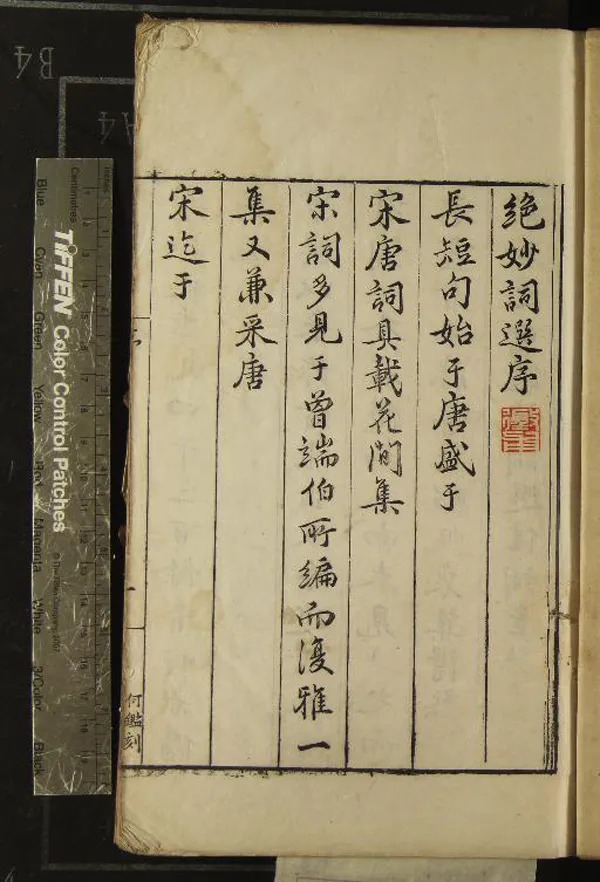 絶妙詞選序
長短句始于唐盛于
宋唐詞具載花間集
宋詞多見于曾端伯所編而復雅一
集又兼采唐
宋迄于
何鑑刻
B4
A4
Inches
Centimetres
TIFFEN Color Control Patches
Blue
Cyan
Green
Yellow
Red
Magenta
White
3/Color
Black